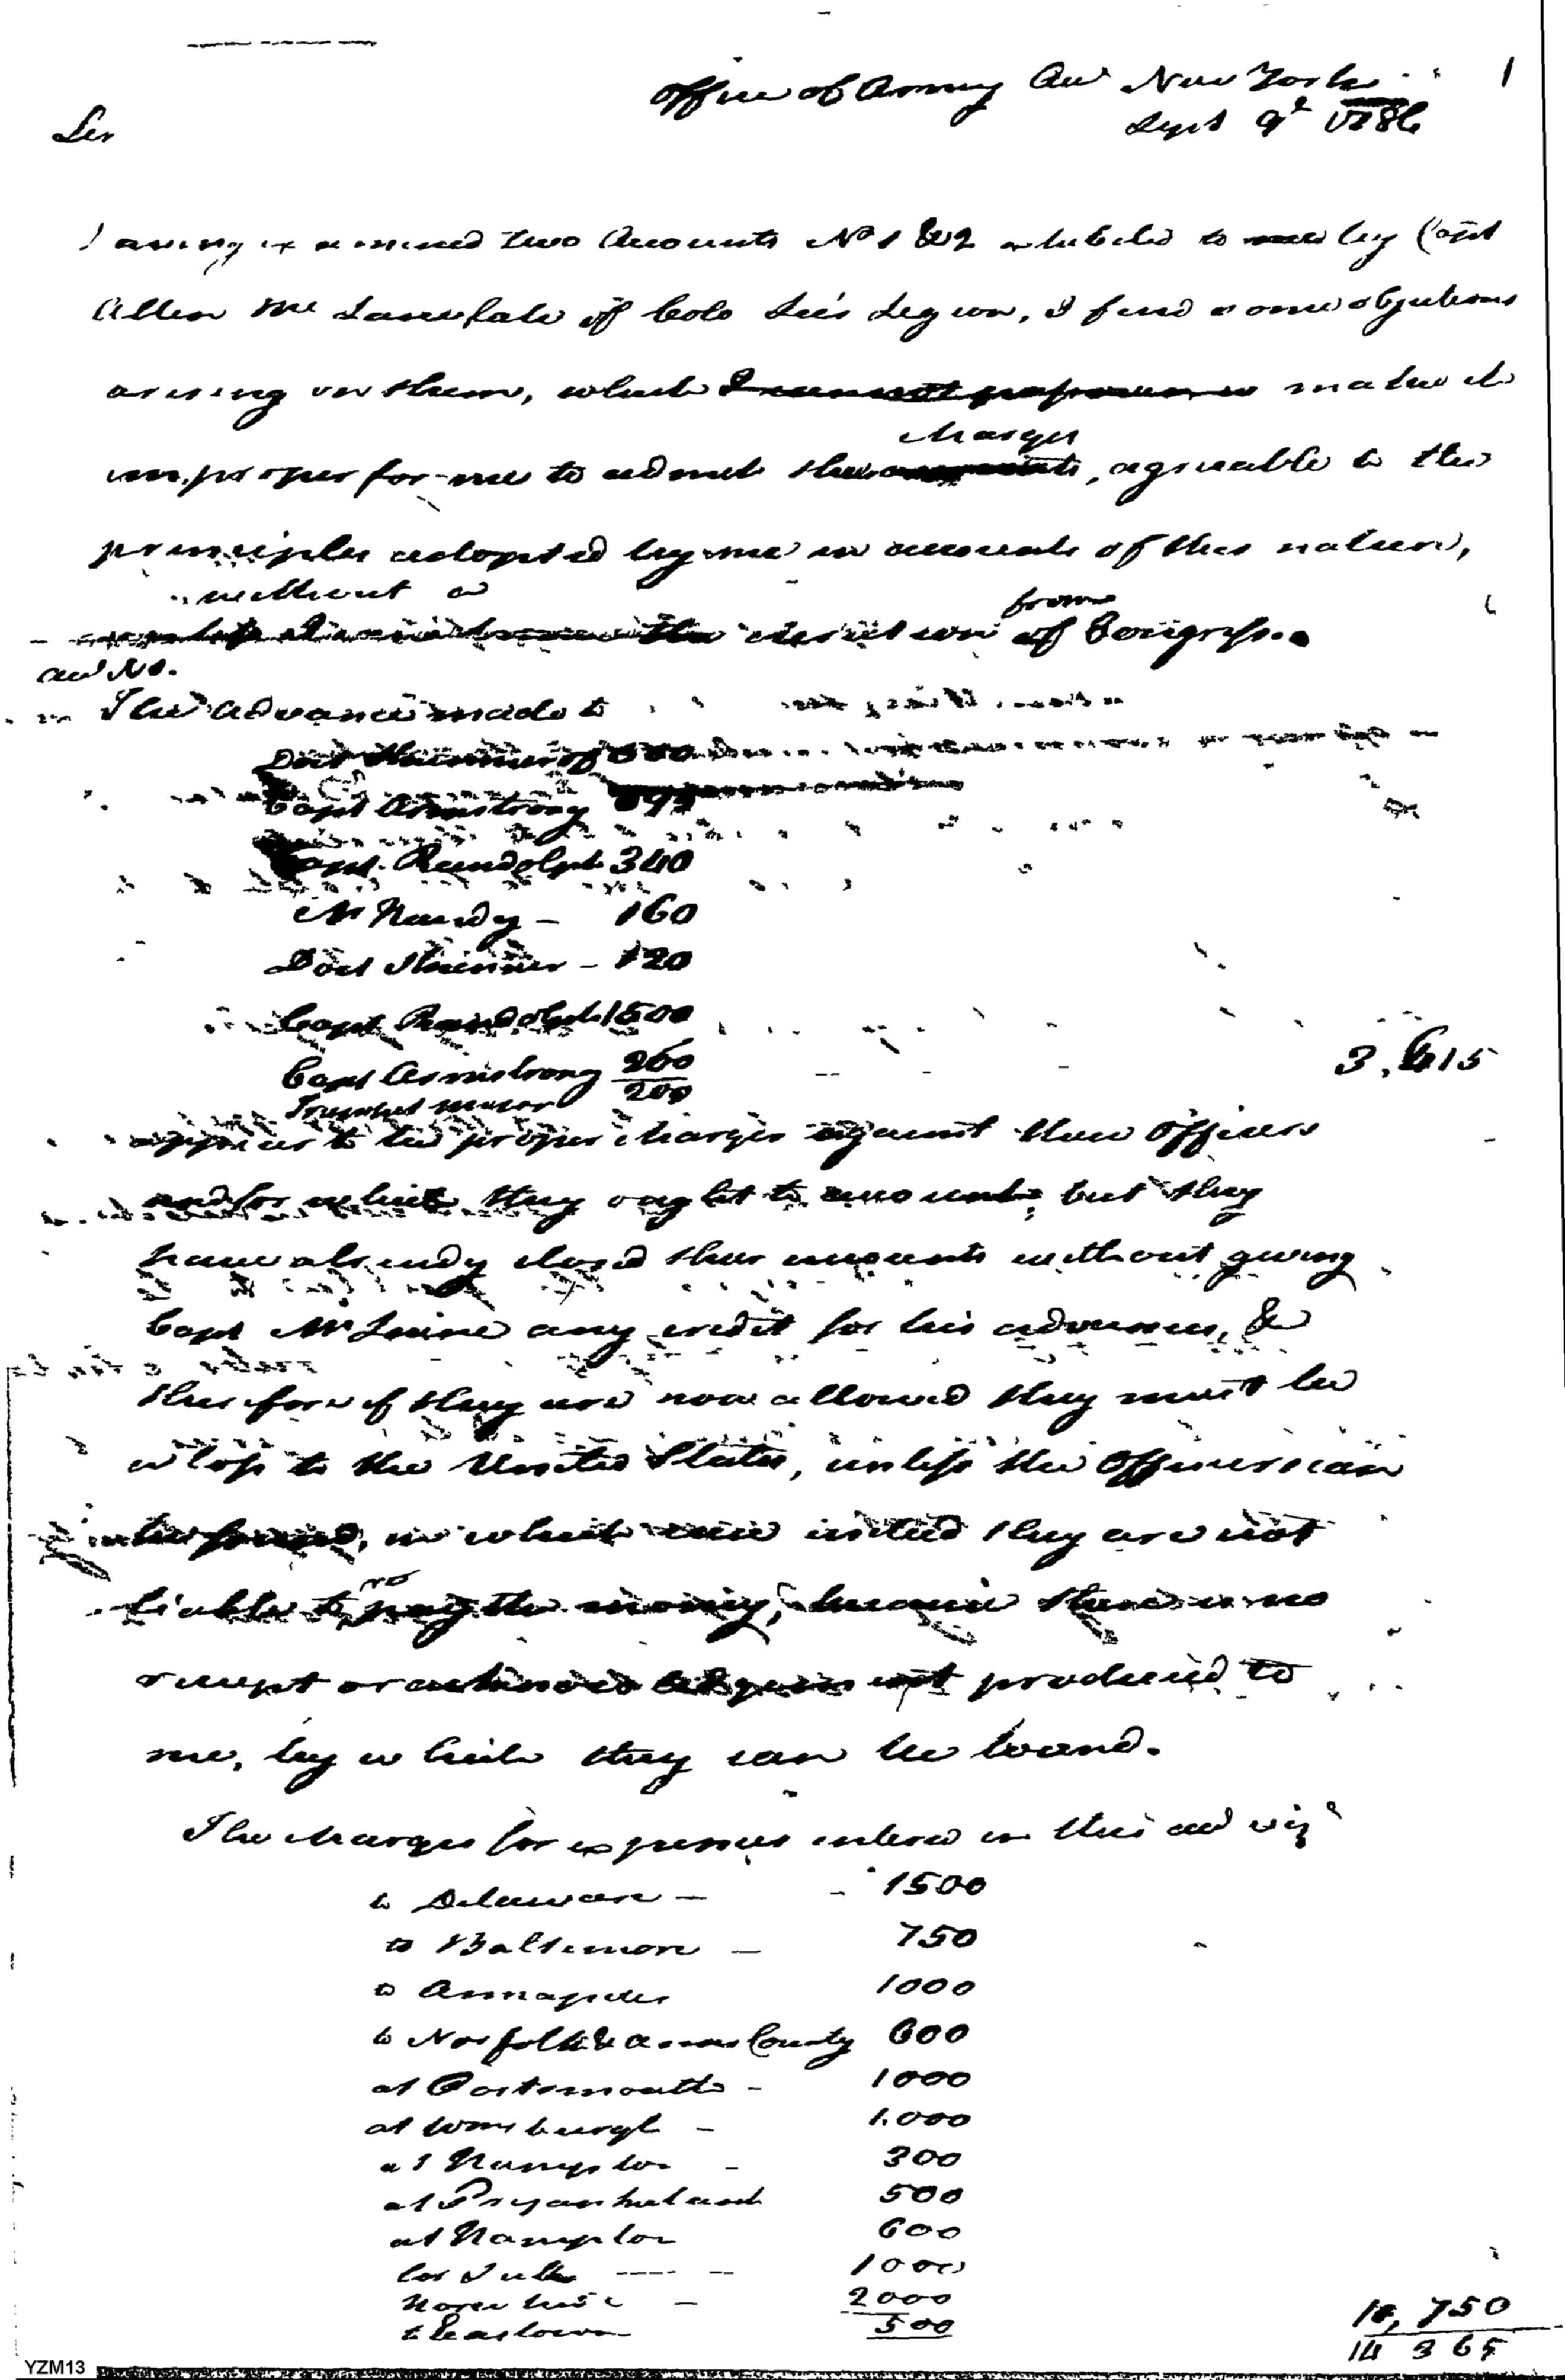 office of Army Acc.t New York 1
Sept 9.th 1786
Sir
Having examined two Accounts No 1 & 2 exhibited to me by Capt
Allen Mc Lane late of Colo Lee's Legion, I find some objections
arising on them, which make it
charges
improper for me to admit the, agreeable to the
principles adopted by me in accounts of this nature,
without a from
direction of Congress.
acct No.
The advances made to
Doct Skinner of
Capt Armstrong
Capt. Rundolph 340
Mr Handy - 160
Doct Skinner - 120
Capt Randolph 1500
Capt Armstrong 260
Trumpet major 200
3,615
appears to be proper charges against these officers
and for which they ought to account; but they
have already closed their accounts without giving
Capt Mc Laine any credit for his advances, &
therefore if they are now allowed they must be
a loss to the United States, unless the Officers can
be found, in which case indeed they are not
liable to pay the money, because there is no
receipt or acknowledgement produced to
me, by which they can be bound.
The charges for expences entered in this acct viz.t
to Delaware - - 1500
to Baltimore - 750
to Annapolis 1000
to Norfolk & County 600
at Portsmouth - 1000
at Wmsburgh - 1.000
at Hampton - 300
at 500
at Hampton 600
for 1000
Horse hire - 2000
to 500
10,750
14 365
YZM13